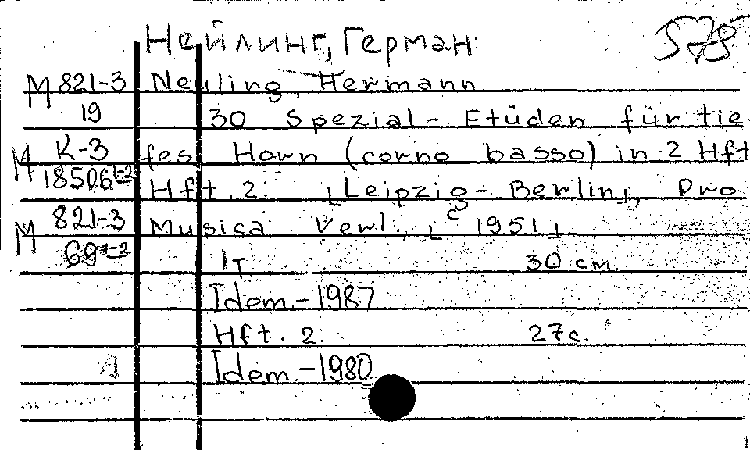 Нейлинг, Герман
578
М 821-3 Neuling, Hermann
19 30 Spezial-Etüden für tie
К-3 fes Horn (corno basso) in 2 Hft
М 18506 1-2 Hft. 2. [Leipzig-Berlin], Pro
М 821-3 Musica Verl., [c 1951]
69 1-2 1т 30 cm
Idem.-1987
Hft. 2. 27c.
Idem.-1980